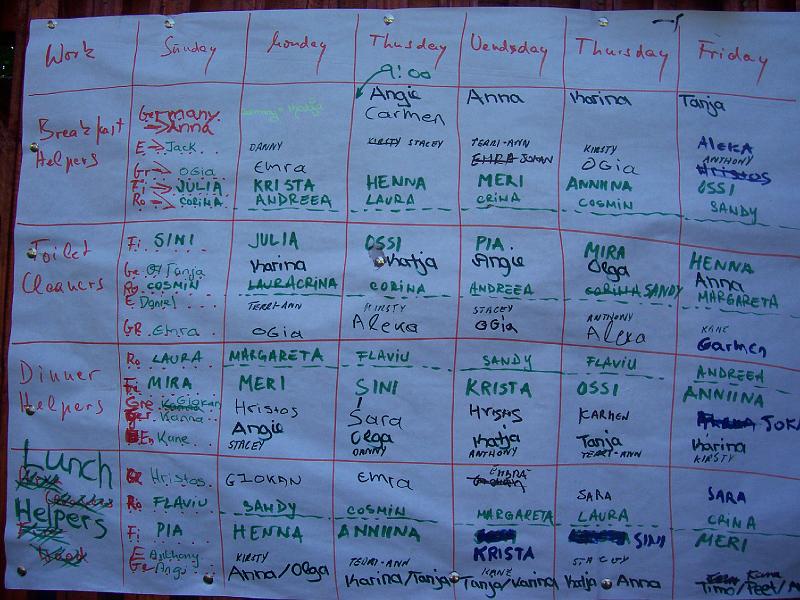 Work Sunday Monday Thusday Wendsday Thursday Friday
9:00
Breakfast Helpers
Germany → Anna
E → Jack
Gr → OGia
Fi → JULIA
Ro → CORINA
DANNY
Emra
KRISTA
ANDREEA
Angie
Carmen
KIRSTY STACEY
HENNA
LAURA
Anna
TERRI-ANN
JOKAN
MERI
CRINA
Karina
KIRSTY
OGia
ANNIINA
COSMIN
Tanja
Aleka
ANTHONY
Hristos
OSSI
SANDY
Toilet Cleaners
Fi. SINI
Ge Tanja
Ro COSMIN
E Daniel
GR Emra
JULIA
Karina
LAURA CRINA
TERRI-ANN
OGia
OSSI
Katja
CORINA
KIRSTY
Aleka
PIA
Angie
ANDREEA
STACEY
OGia
MIRA
Olga
CORINA SANDY
ANTHONY
Alexa
HENNA
Anna
MARGARETA
KANE
Carmen
Dinner Helpers
Ro LAURA
Fi MIRA
Gre Giokan
Ger Hanna
En Kane
MARGARETA
MERI
Hristos
Angie
STACEY
FLAVIU
SINI
Sara
Olga
DANNY
SANDY
KRISTA
Hristos
Katja
ANTHONY
FLAVIU
OSSI
KARMEN
Tanja
TERRI-ANN
ANDREEA
ANNIINA
JOKA
Karina
KIRSTY
Lunch Helpers
Gr Hristos
Ro FLAVIU
Fi PIA
E Anthony
Ge Angi
GIOKAN
SANDY
HENNA
KIRSTY
Anna/Olga
Emra
COSMIN
ANNIINA
TERRI-ANN
Karina/Tanja
MARGARETA
KRISTA
KANE
Tanja/Karina
SARA
LAURA
SINI
STACEY
Katja Anna
SARA
CRINA
MERI
Timo/Peet/